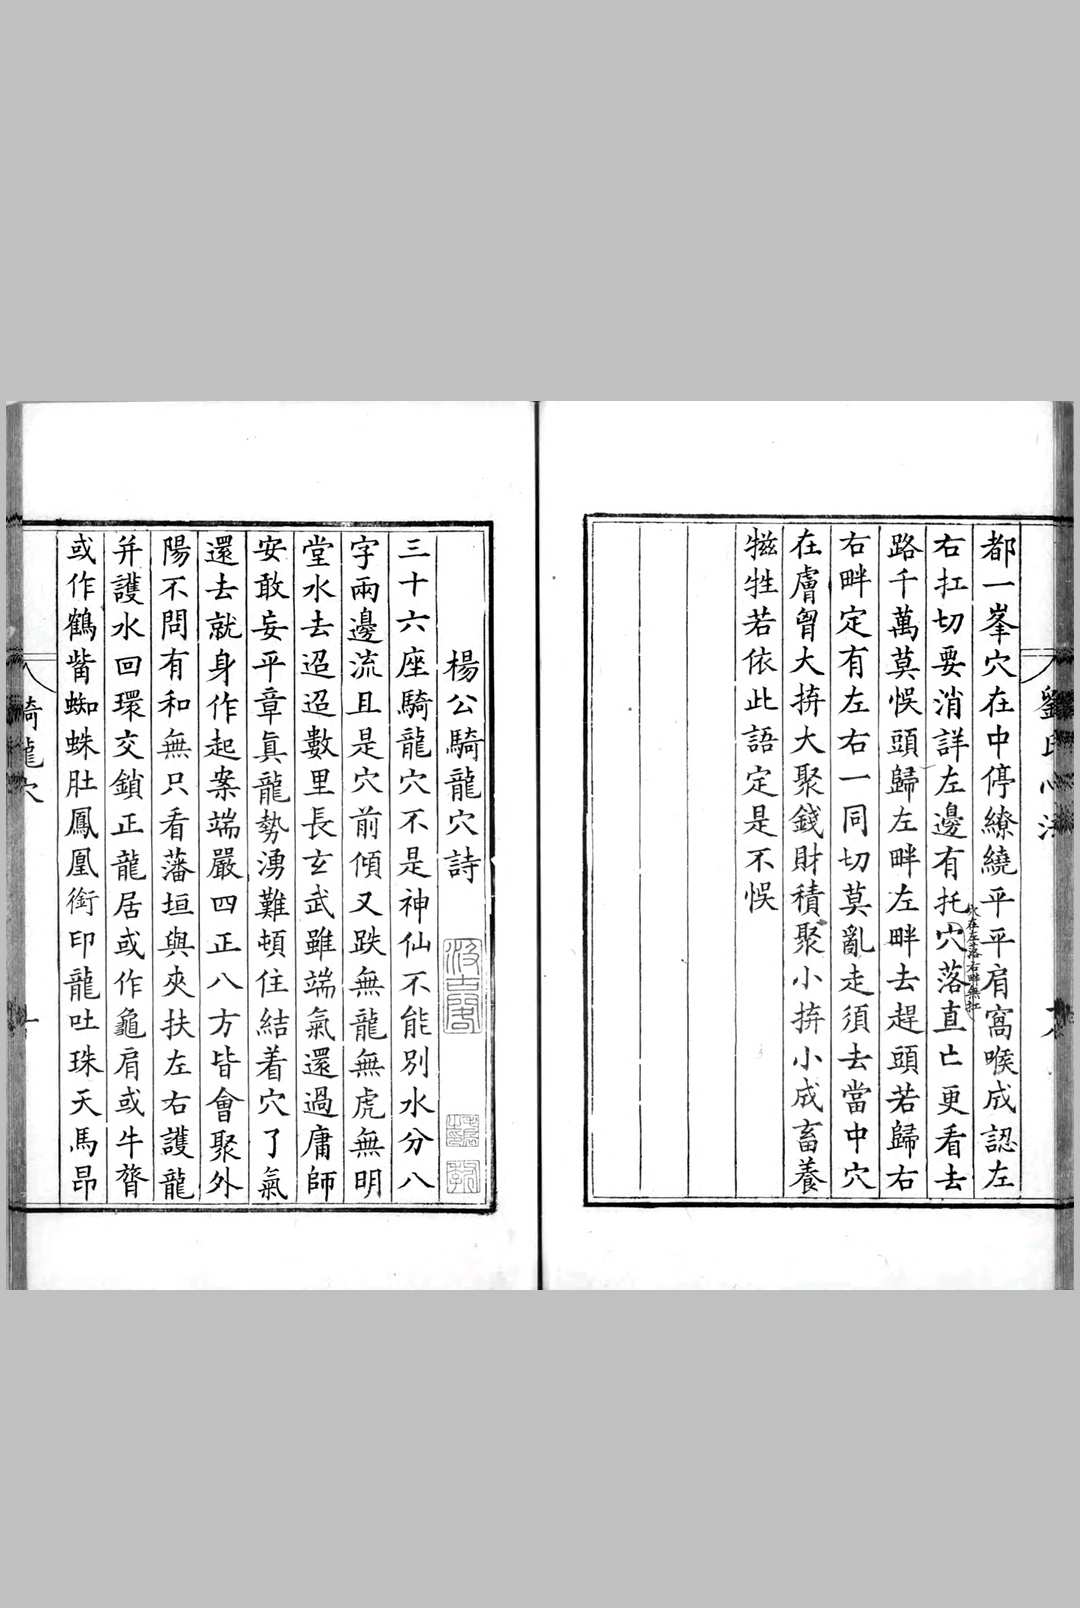 都一峯穴在中停繚繞平平肩窩喉成認左
右扛切要消詳左邊有托穴落直亡更看去
穴在左落右畔無扛
路千萬莫悞頭歸左畔左畔去趕頭若歸右
右畔定有左右一同切莫亂走須去當中穴
在膚曾大拚大聚錢財積聚小拚小成畜養
牸牲若依此語定是不悞
楊公騎龍穴詩
三十六座騎龍穴不是神仙不能別水分八
字兩邊流且是穴前傾又跌無龍無虎無明
堂水去迢迢數里長玄武雖端氣還過庸師
安敢妄平章眞龍勢湧難頓住結着穴了氣
還去就身作起案端嚴四正八方皆會聚外
陽不問有和無只看藩垣與夾扶左右護龍
并護水回環交鎖正龍居或作龜肩或牛膂
或作鶴觜蜘蛛肚鳳凰銜印龍吐珠天馬昂
騎龍穴